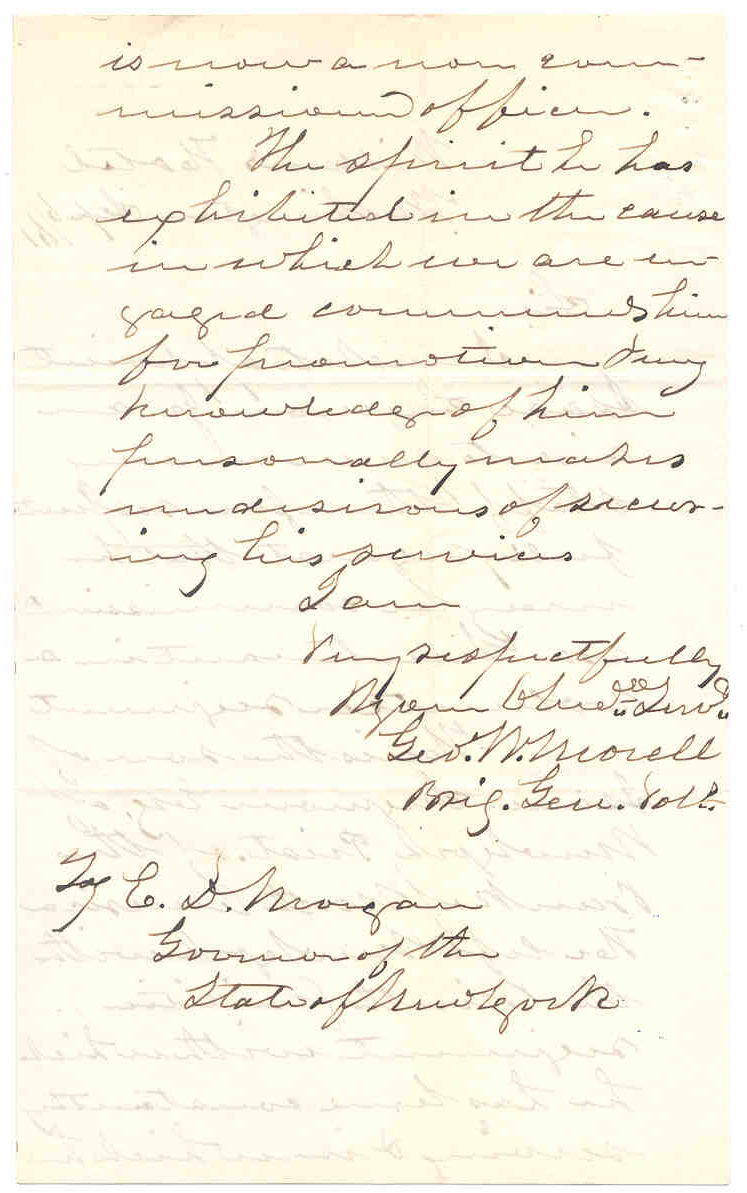 is now a non com-
missioned officer.
The spirit he has
exhibited in the cause
in which we are en-
gaged commends him
for promotion & my
knowledge of him
personally makes
me desirous of secur-
ing his services
I am
Very respectfully
Your Obed. Servt.
Geo. W. Morell
Brig. Gen. Vols.
To E. D. Morgan
Governor of the
State of New York